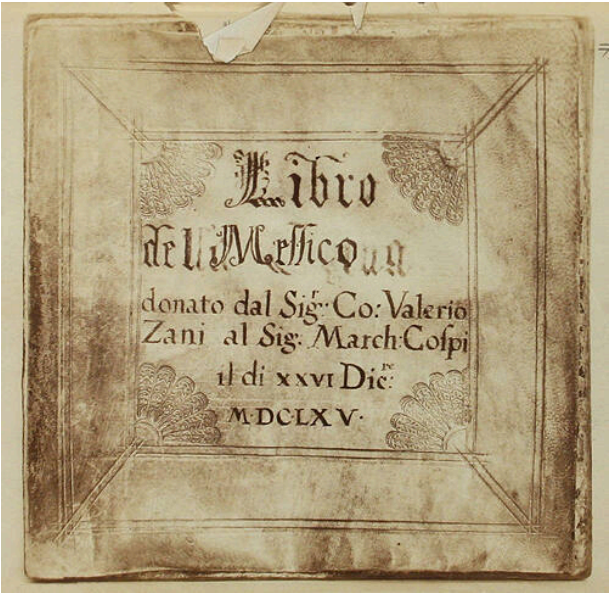 Libro
del Messico
donato dal Sig.r Co: Valerio
Zani al Sig. March: Coſpi
il di XXVI Dic.re
M·DC·LXV·